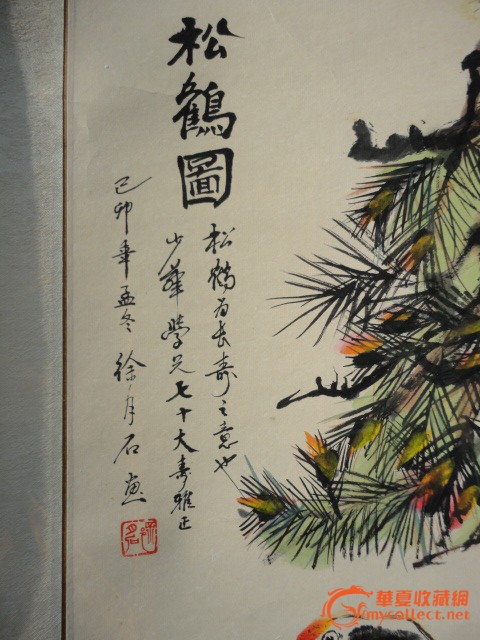 松鶴圖
松鶴为长寿之意也
少華學兄七十大寿雅正
己卯年孟冬徐月石画
華夏收藏網
mycollect.net